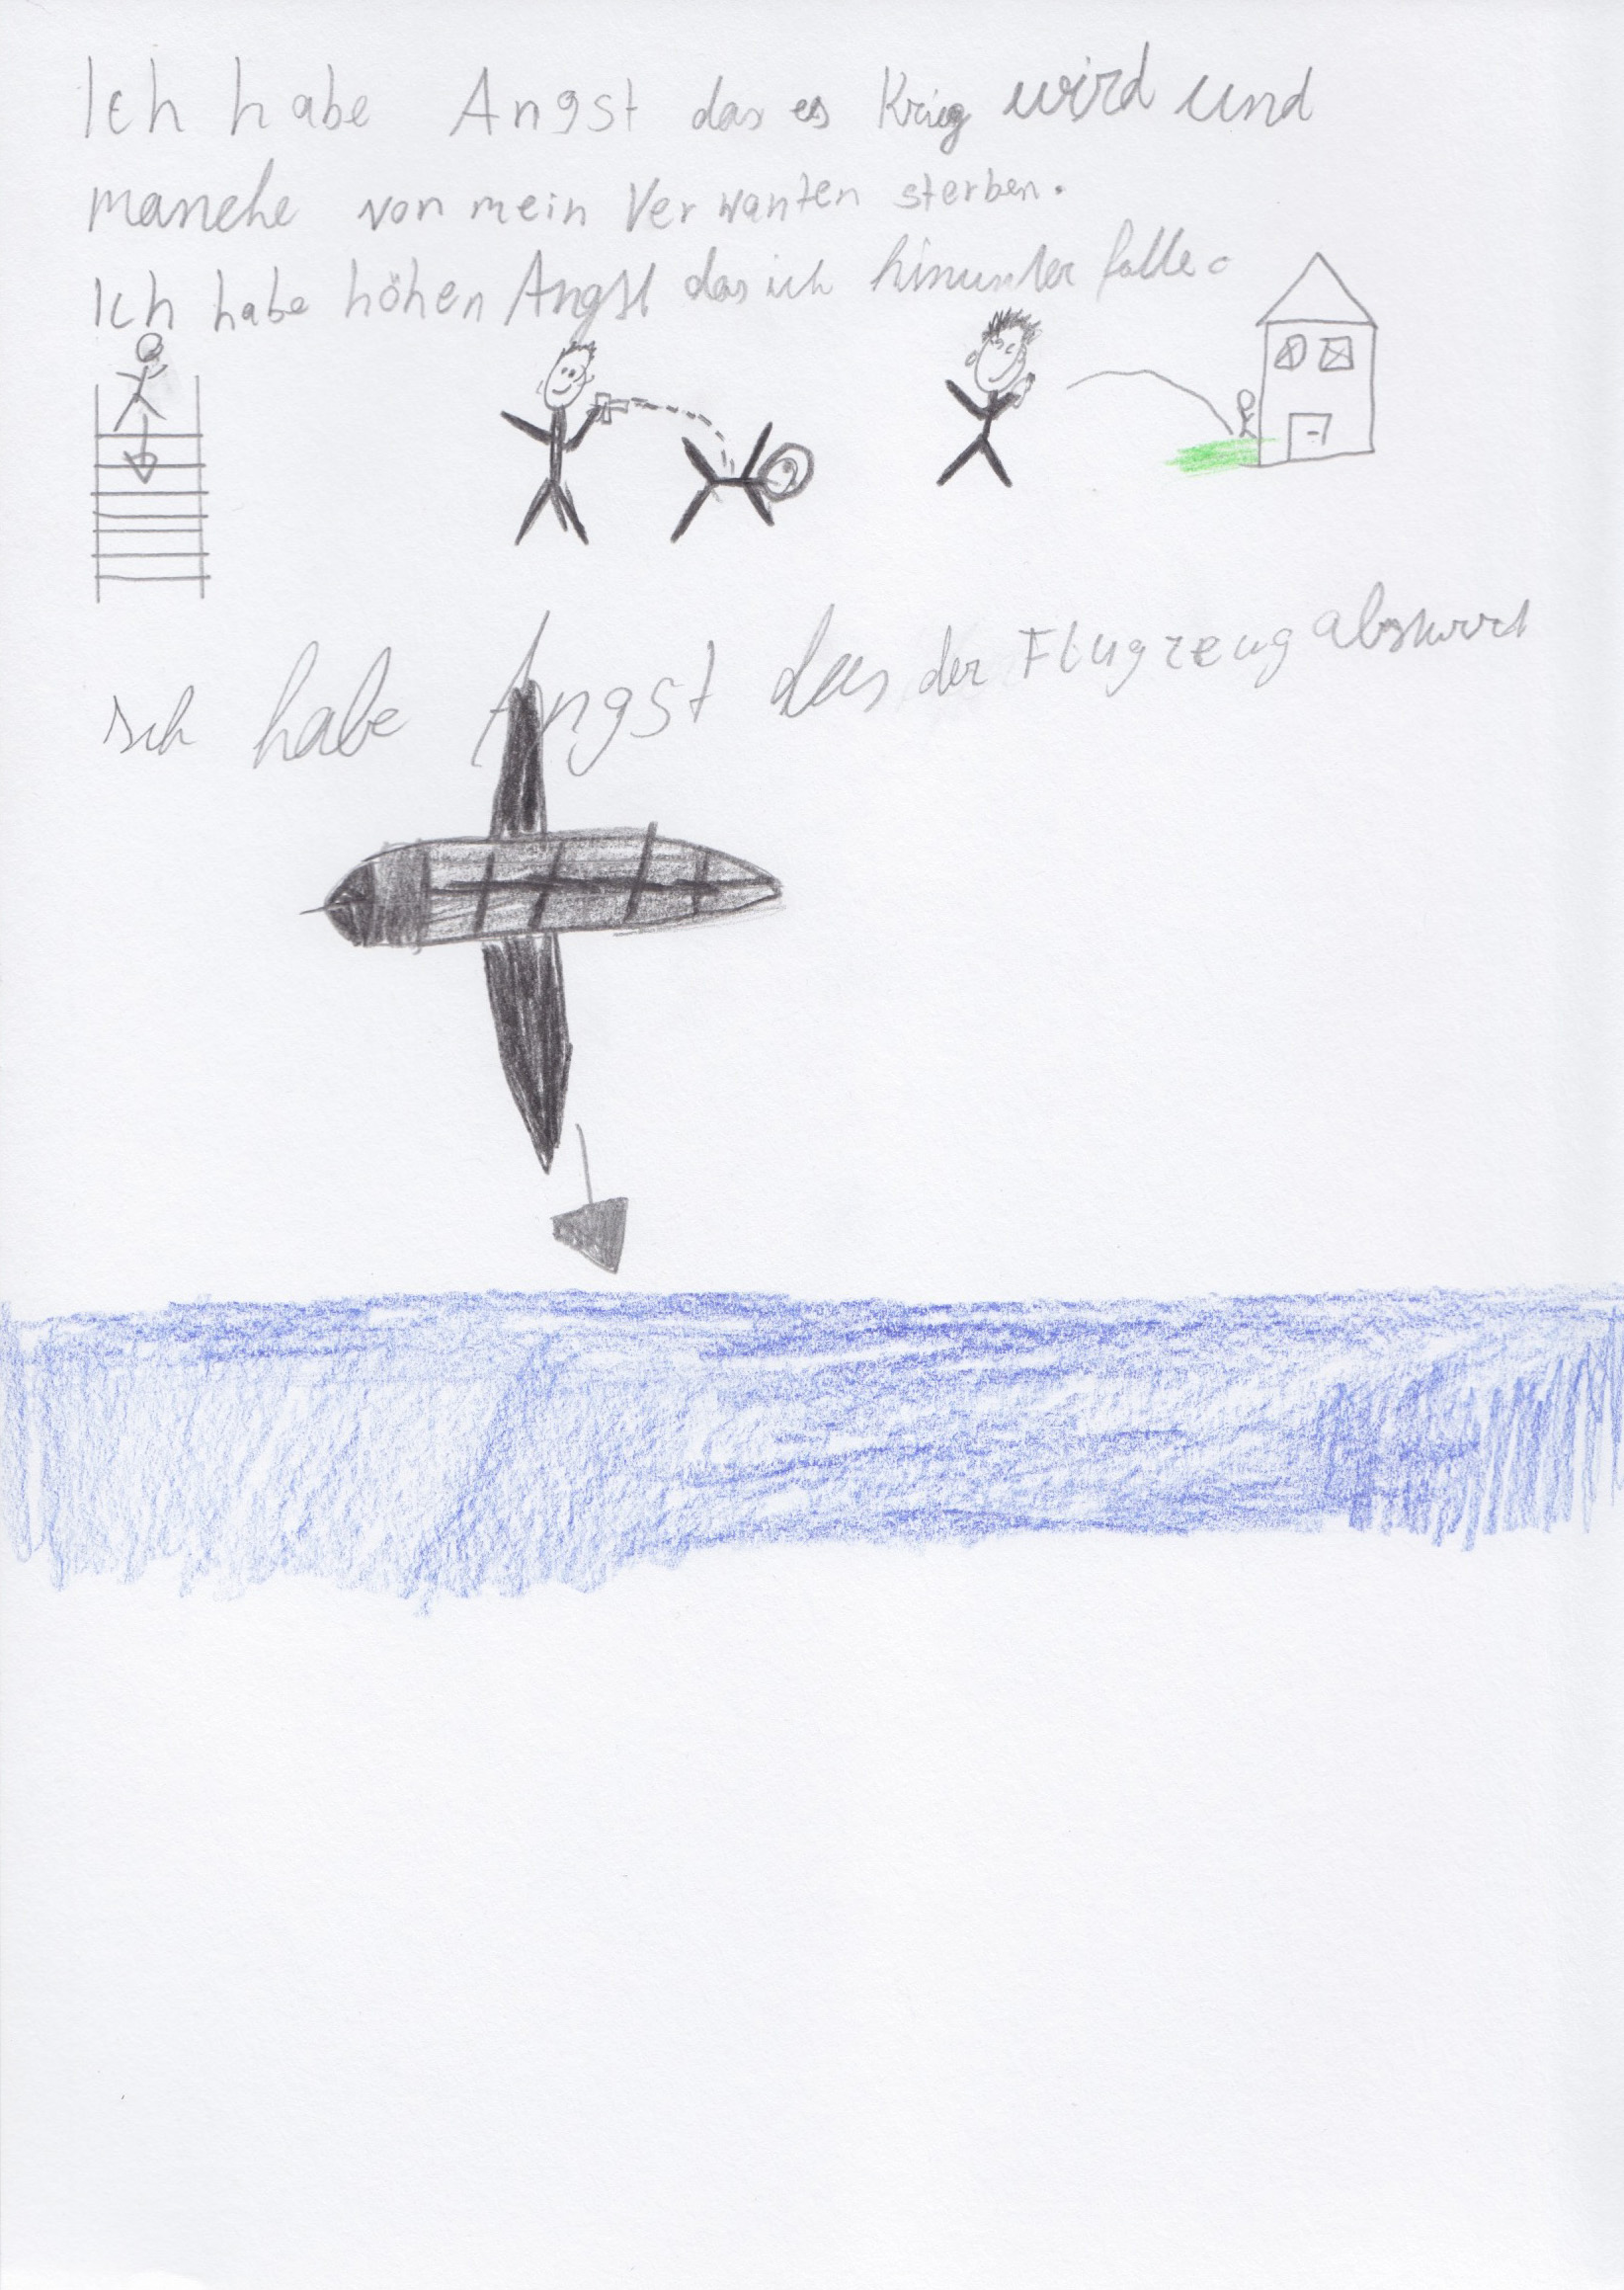 Ich habe Angst das es Krieg wird und
manche von mein Verwanten sterben.
Ich habe höhen Angst das ich hinunter falle.
Ich habe Angst das der Flugzeug